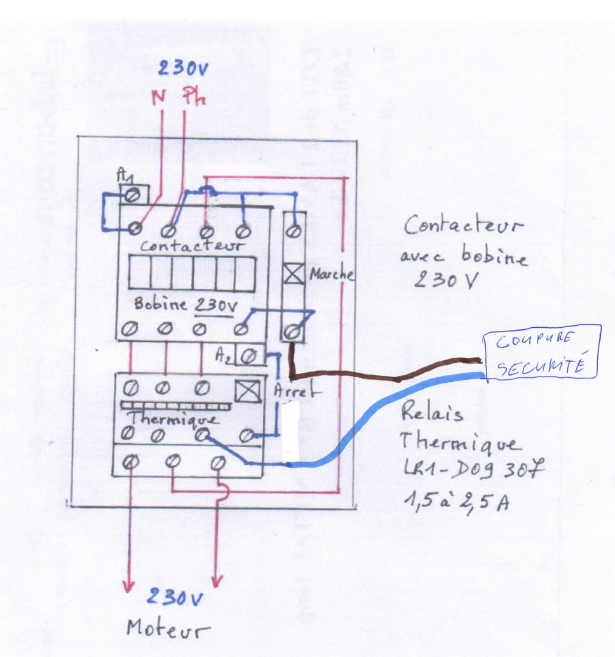 230V
N Ph
A1
Contacteur
Marche
Bobine 230V
A2
Arret
Thermique
230V
Moteur
Contacteur
avec bobine
230 V
COUPURE
SECURITÉ
Relais
Thermique
LR1-D09 307
1,5 à 2,5 A